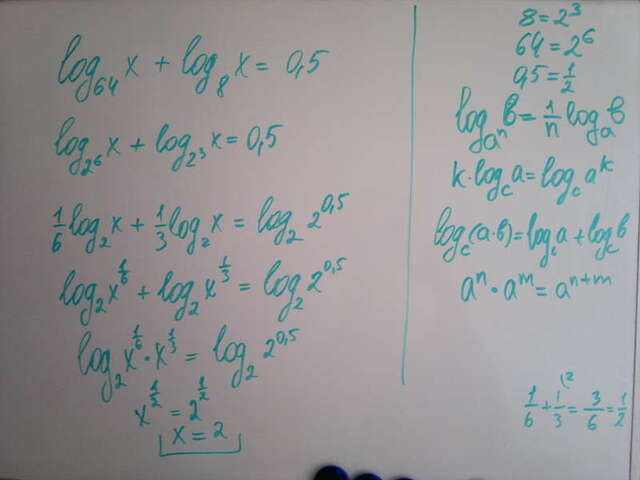 log₆₄x + log₈x = 0,5
log₂⁶x + log₂³x = 0,5
1/6 log₂x + 1/3 log₂x = log₂2^0,5
log₂x^1/6 + log₂x^1/3 = log₂2^0,5
log₂x^1/6 · x^1/3 = log₂2^0,5
x^1/2 = 2^1/2
x = 2
8 = 2³
64 = 2⁶
0,5 = 1/2
log_aⁿ b = 1/n log_a b
k · log_c a = log_c a^k
log_c(a·b) = log_c a + log_c b
aⁿ · a^m = a^n+m
1/6 + 1/3 (2 = 3/6 = 1/2